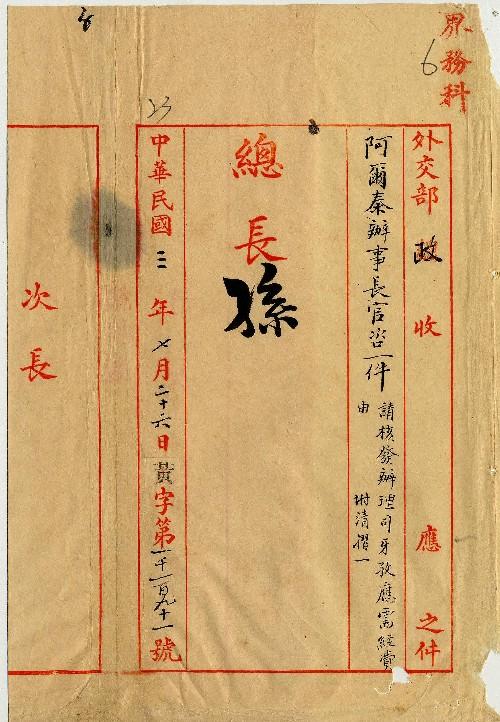 界務科
6
外交部政收 應之件
阿爾泰辦事長官咨一件 請核發辦理司牙孜應需經費
由 附清摺一
總長 孫
23
中華民國三年七月二十六日黃字第一千一百九十一號
次長